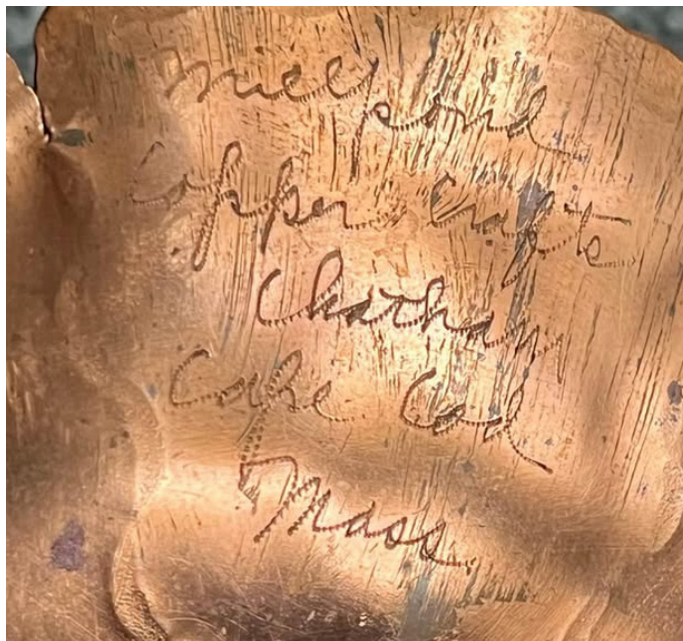 Mill pond
Copper Crafts
Chatham
Cape Cod
Mass